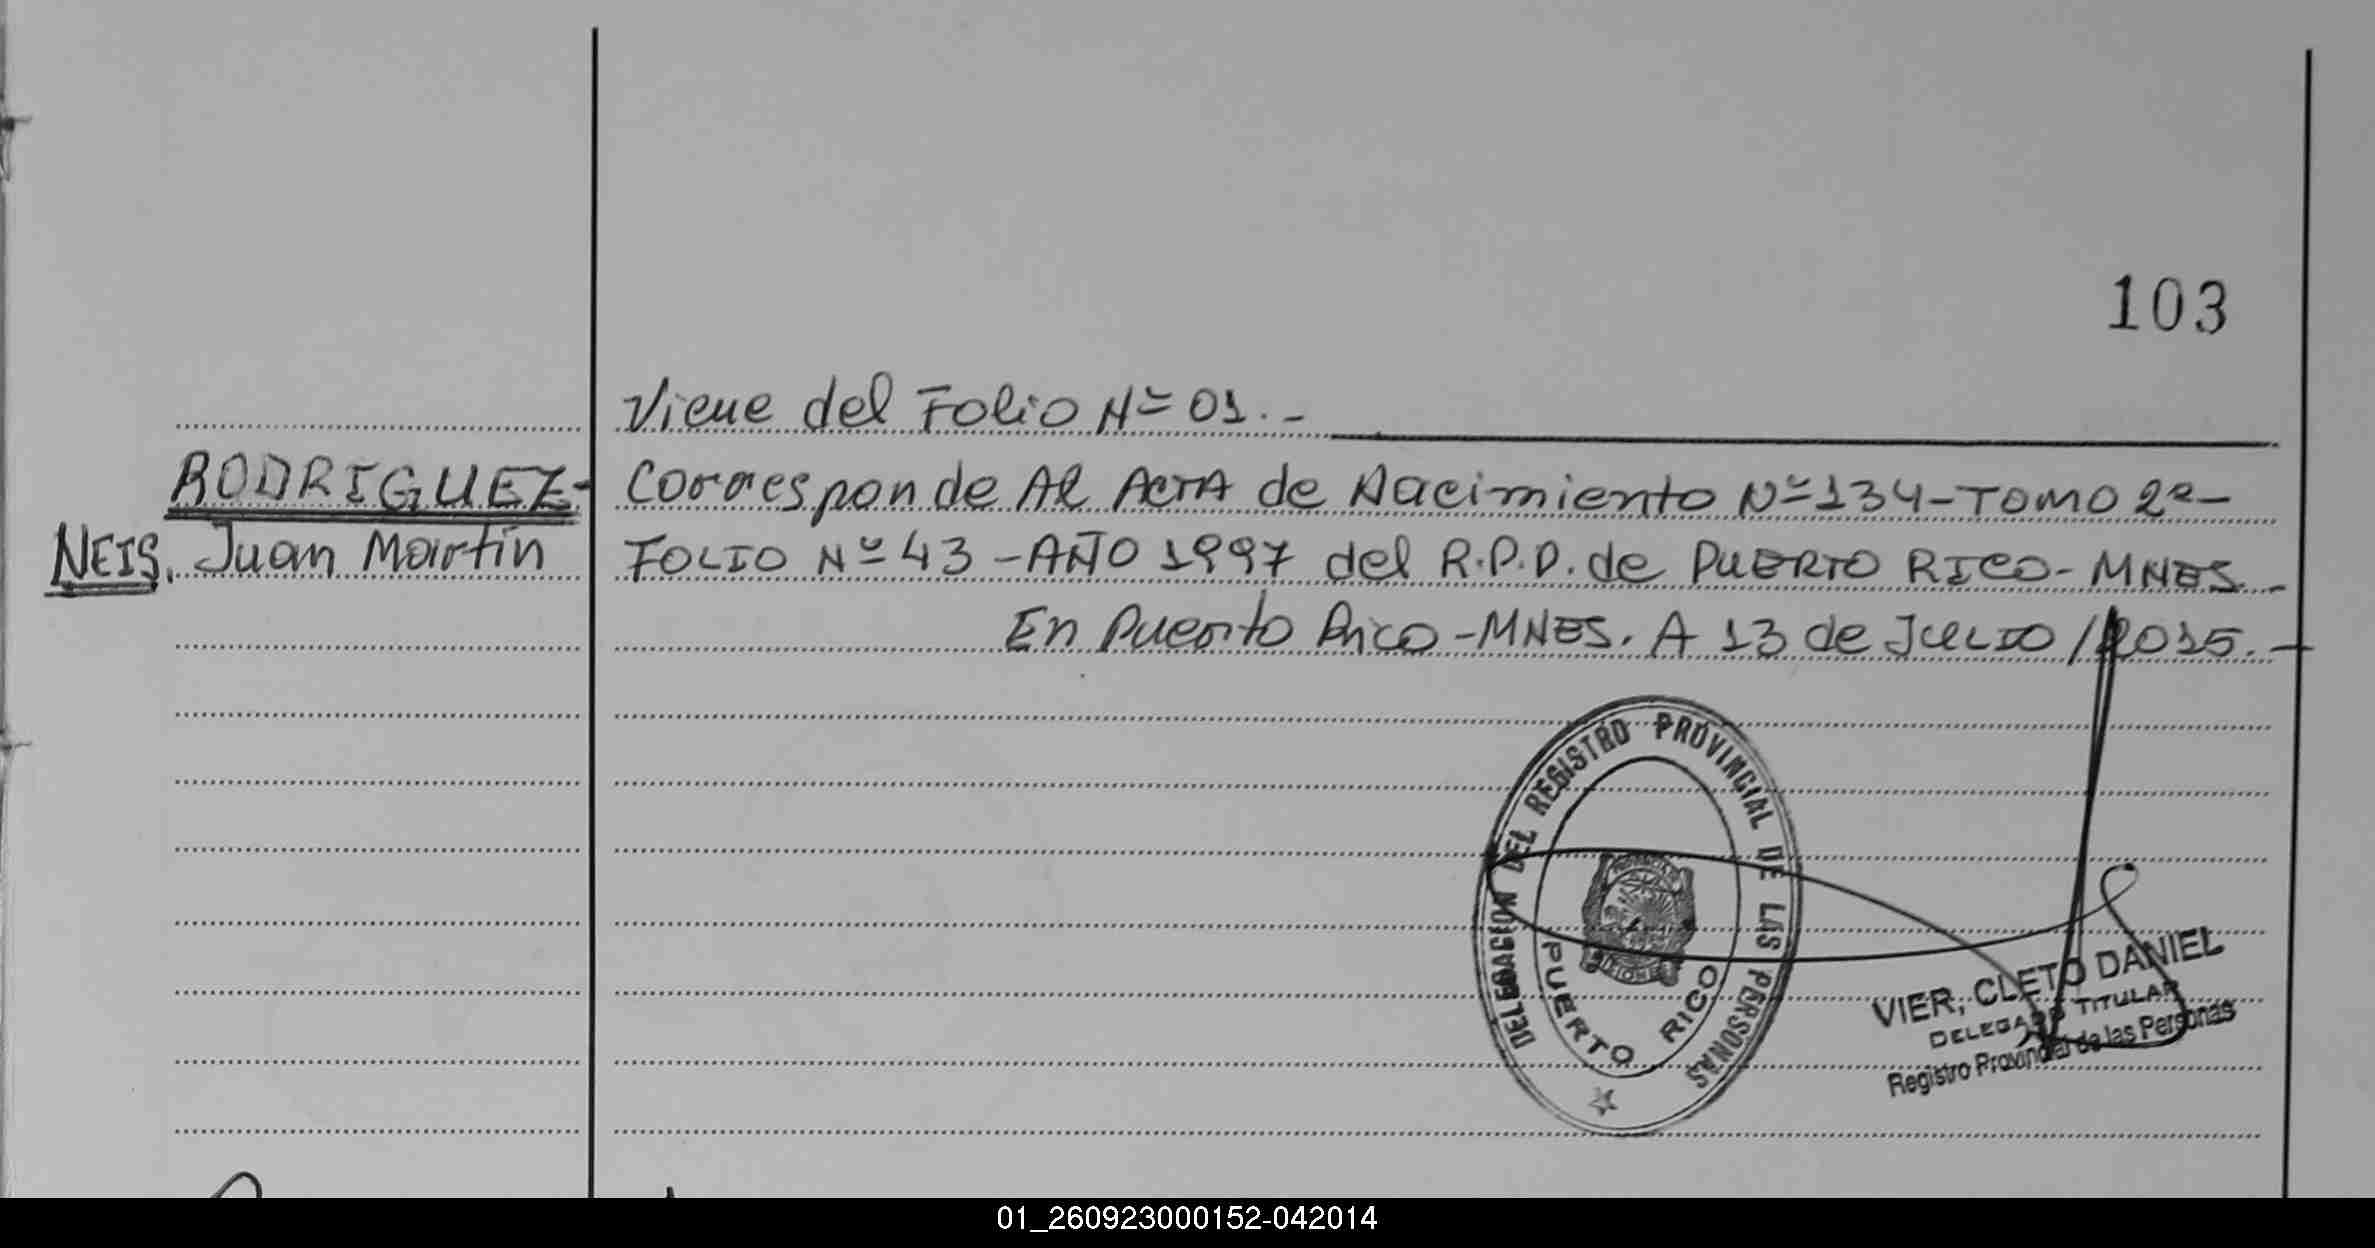 103
Viene del Folio Nº 01.-
RODRIGUEZ- Corresponde Al Acta de Nacimiento Nº 134-TOMO 2º-
NEIS, Juan Martín FOLIO Nº 43 -AÑO 1997 del R.P.P. de PUERTO RICO- MNES.-
En Puerto Rico-MNES. A 13 de JULIO/2015.-
DELEGACION DEL REGISTRO PROVINCIAL DE LAS PERSONAS
PUERTO RICO
VIER, CLETO DANIEL
DELEGADO TITULAR
Registro Provincial de las Personas
01_260923000152-042014